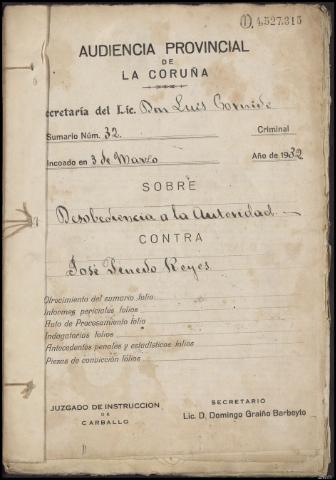 (1) 4.527.315
AUDIENCIA PROVINCIAL
DE
LA CORUÑA
ecretaría del Lic. Don Luis Cornide
Sumario Núm. 32. Criminal
incoado en 3 de Marzo Año de 1932
SOBRE
Desobediencia a la Autoridad
CONTRA
José Reyes
Ofrecimiento del sumario folio
Informes periciales folios
Auto de Procesamiento folio
Indagatorias folios
Antecedentes penales y estadísticos folios
Piezas de convicción folios
JUZGADO DE INSTRUCCION
DE
CARBALLO
SECRETARIO
Lic. D. Domingo Graiño Barbeyto